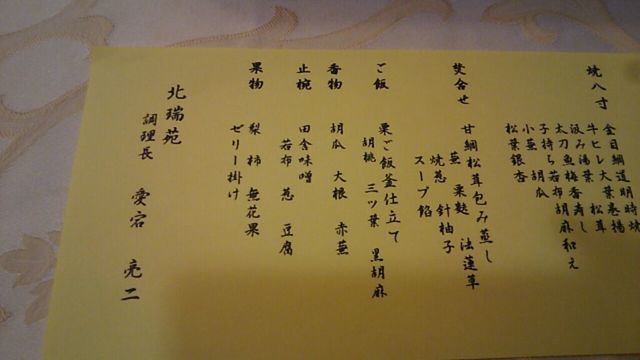 焼八寸
金目鯛道明時焼
牛ヒレ大葉巻揚
汲み湯葉 松茸
太刀魚梅香寿し
子持ち若布胡麻和え
小茎 胡瓜
松葉銀杏
焚合せ
甘鯛松茸包み蒸し
蕪 栗麩 法蓮草
焼葱 針柚子
スープ餡
ご飯
栗ご飯釜仕立て
胡桃 三ツ葉 黒胡麻
香物
胡瓜 大根 赤蕪
止椀
田舎味噌
若布 葱 豆腐
果物
梨 柿 無花果
ゼリー掛け
北瑞苑
調理長 愛宕 亮二